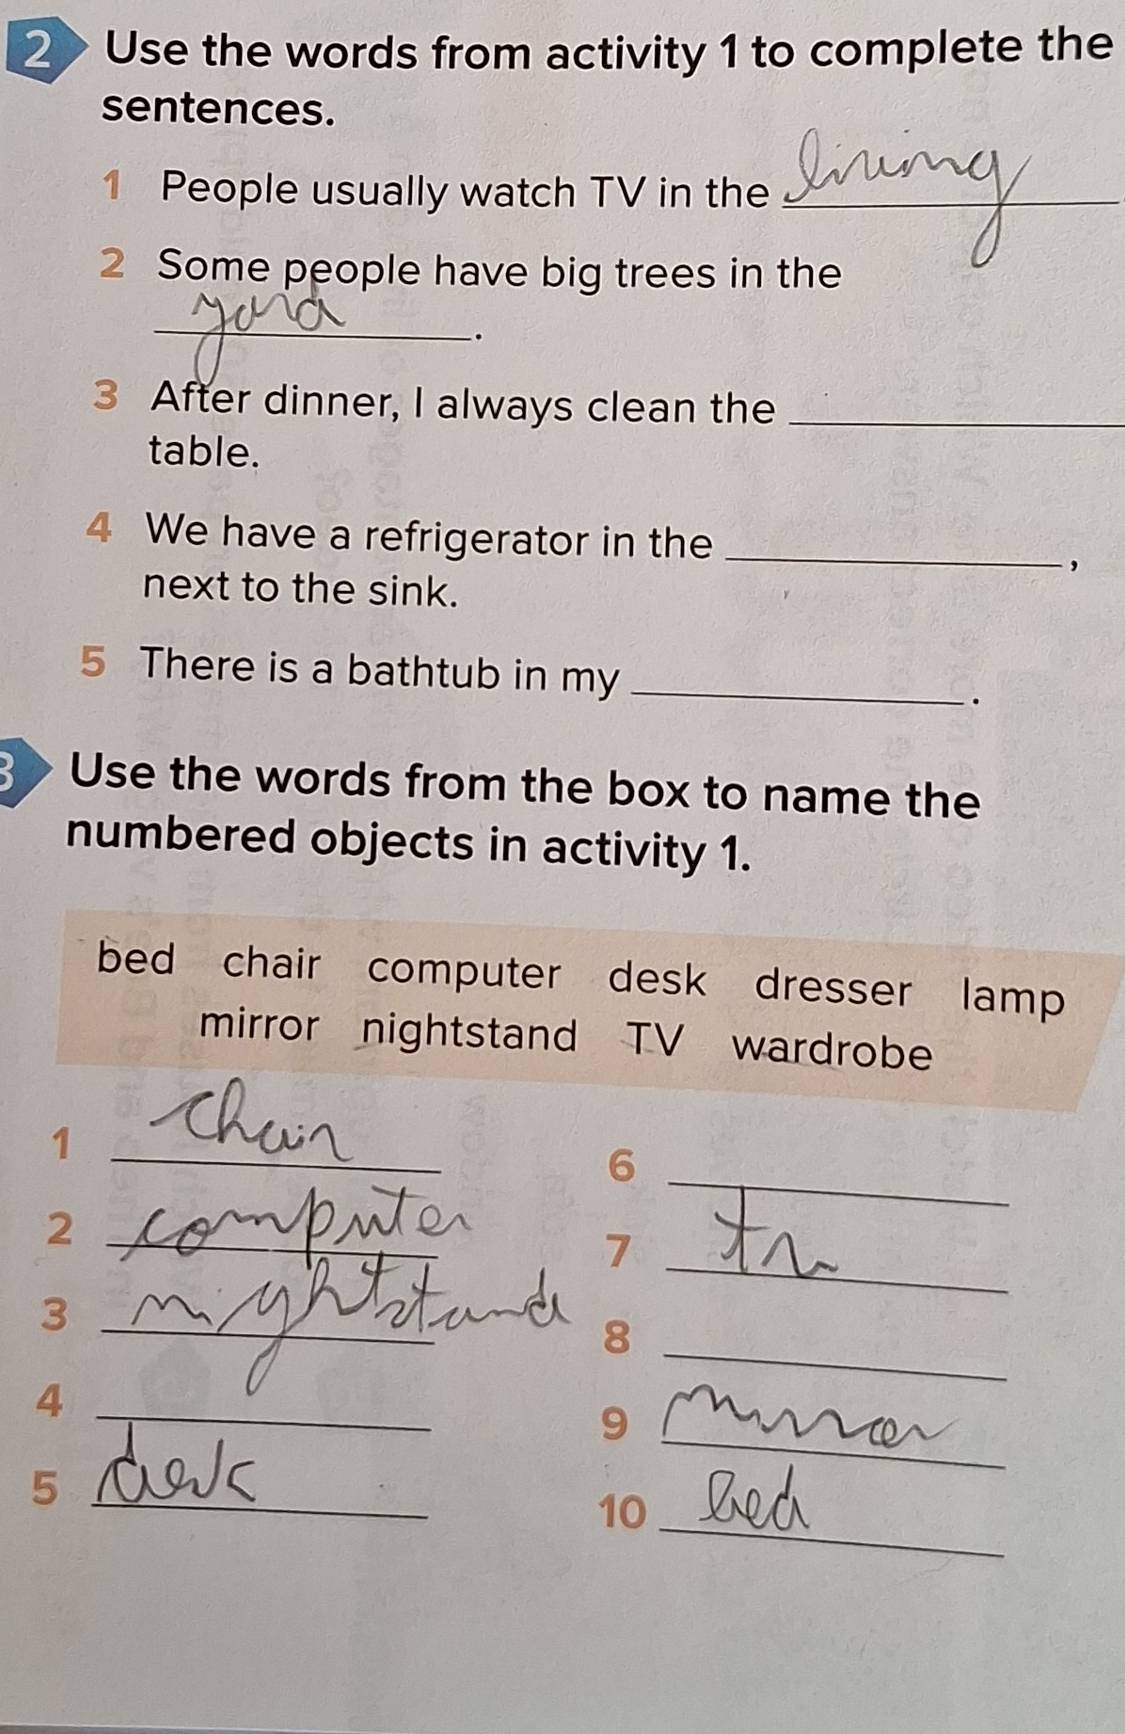 2 Use the words from activity 1 to complete the
sentences.
1 People usually watch TV in the living
2 Some people have big trees in the
yard.
3 After dinner, I always clean the ____
table.
4 We have a refrigerator in the ____,
next to the sink.
5 There is a bathtub in my ____.
3 Use the words from the box to name the
numbered objects in activity 1.
bed chair computer desk dresser lamp
mirror nightstand TV wardrobe
1 chair
2 computer
3 nightstand
4
5 desk
6
7 tv
8
9 mirror
10 bed